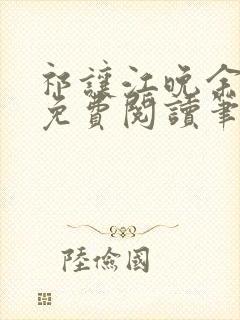 祁讓江晚余
免費閱讀筆
陸儉國